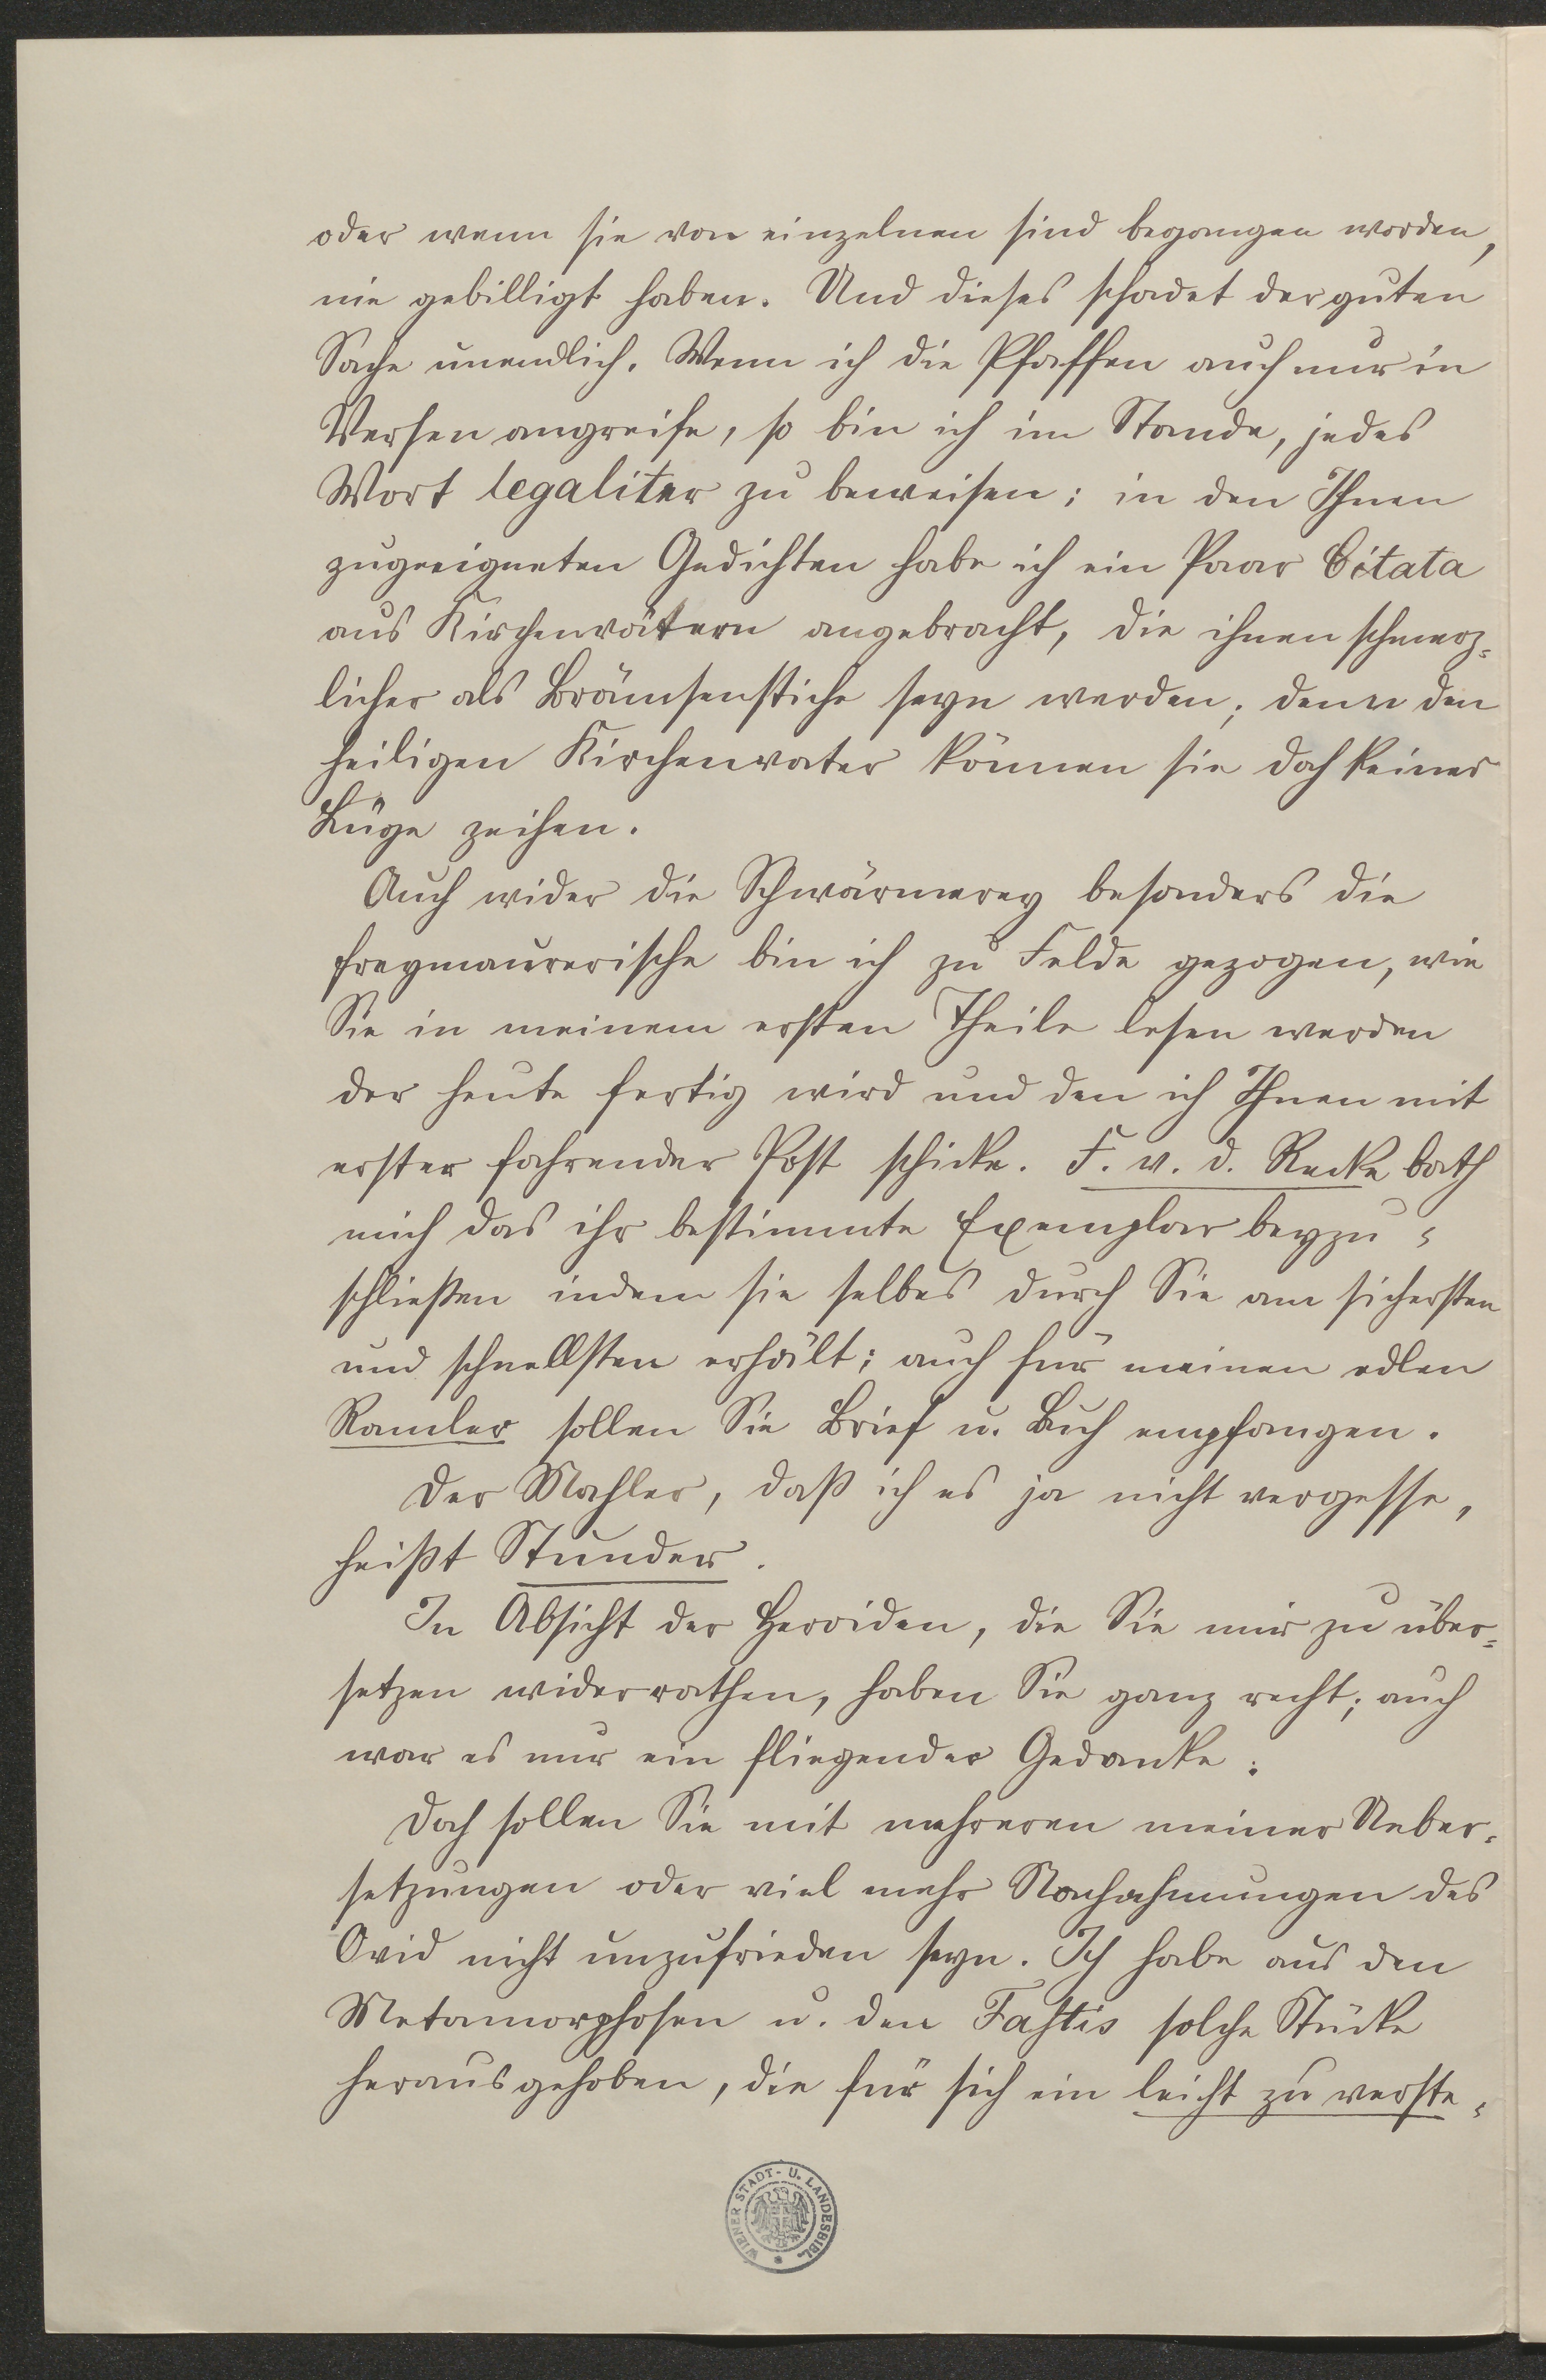 oder wenn sie von einzelnen sind begangen worden,
nie gebilligt haben. Und dieses schadet der guten
Sache unendlich. Wenn ich die Pfaffen auch nur in
Versen angreife, so bin ich im Stande, jedes
Wort legaliter zu beweisen; in den Ihnen
zugeeigneten Gedichten habe ich ein Paar Citata
aus Kirchenvätern angebracht, die ihnen schmerz-
licher als Brämsenstiche seyn werden; denn den
heiligen Kirchenvater können sie doch keiner
Lüge zeihen.
Auch wider die Schwärmerey besonders die
freymaurerische bin ich zu Felde gezogen, wie
Sie in meinem ersten Theile lesen werden
der heute fertig wird und den ich Ihnen mit
erster fahrender Post schicke. F. v. d. Recke bath
mich das ihr bestimmte Exemplar beyzu-
schließen indem sie selbes durch Sie am sichersten
und schnellsten erhält; auch für meinen edlen
Ramler sollen Sie Brief u. Buch empfangen.
Der Mahler, daß ich es ja nicht vergesse,
heißt Stunder.
In Absicht der Heroiden, die Sie mir zu über-
setzen widerrathen, haben Sie ganz recht; auch
war es nur ein fliegender Gedanke.
Doch sollen Sie mit mehreren meiner Ueber-
setzungen oder viel mehr Nachahmungen des
Ovid nicht unzufrieden seyn. Ich habe aus den
Metamorphosen u. den Fastis solche Stücke
herausgehoben, die für sich ein leicht zu verste-
WIENER STADT- U. LANDESBIBL.